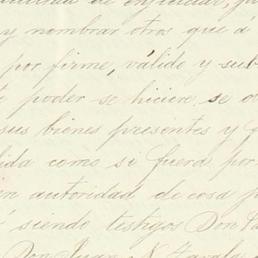 y nombrar otros que á
por firme, válido y sub
poder se hiciere, se o
sus bienes presentes y f
ida como si fuera por
autoridad de cosa p
siendo testigos Don
Don Juan N. Zavala